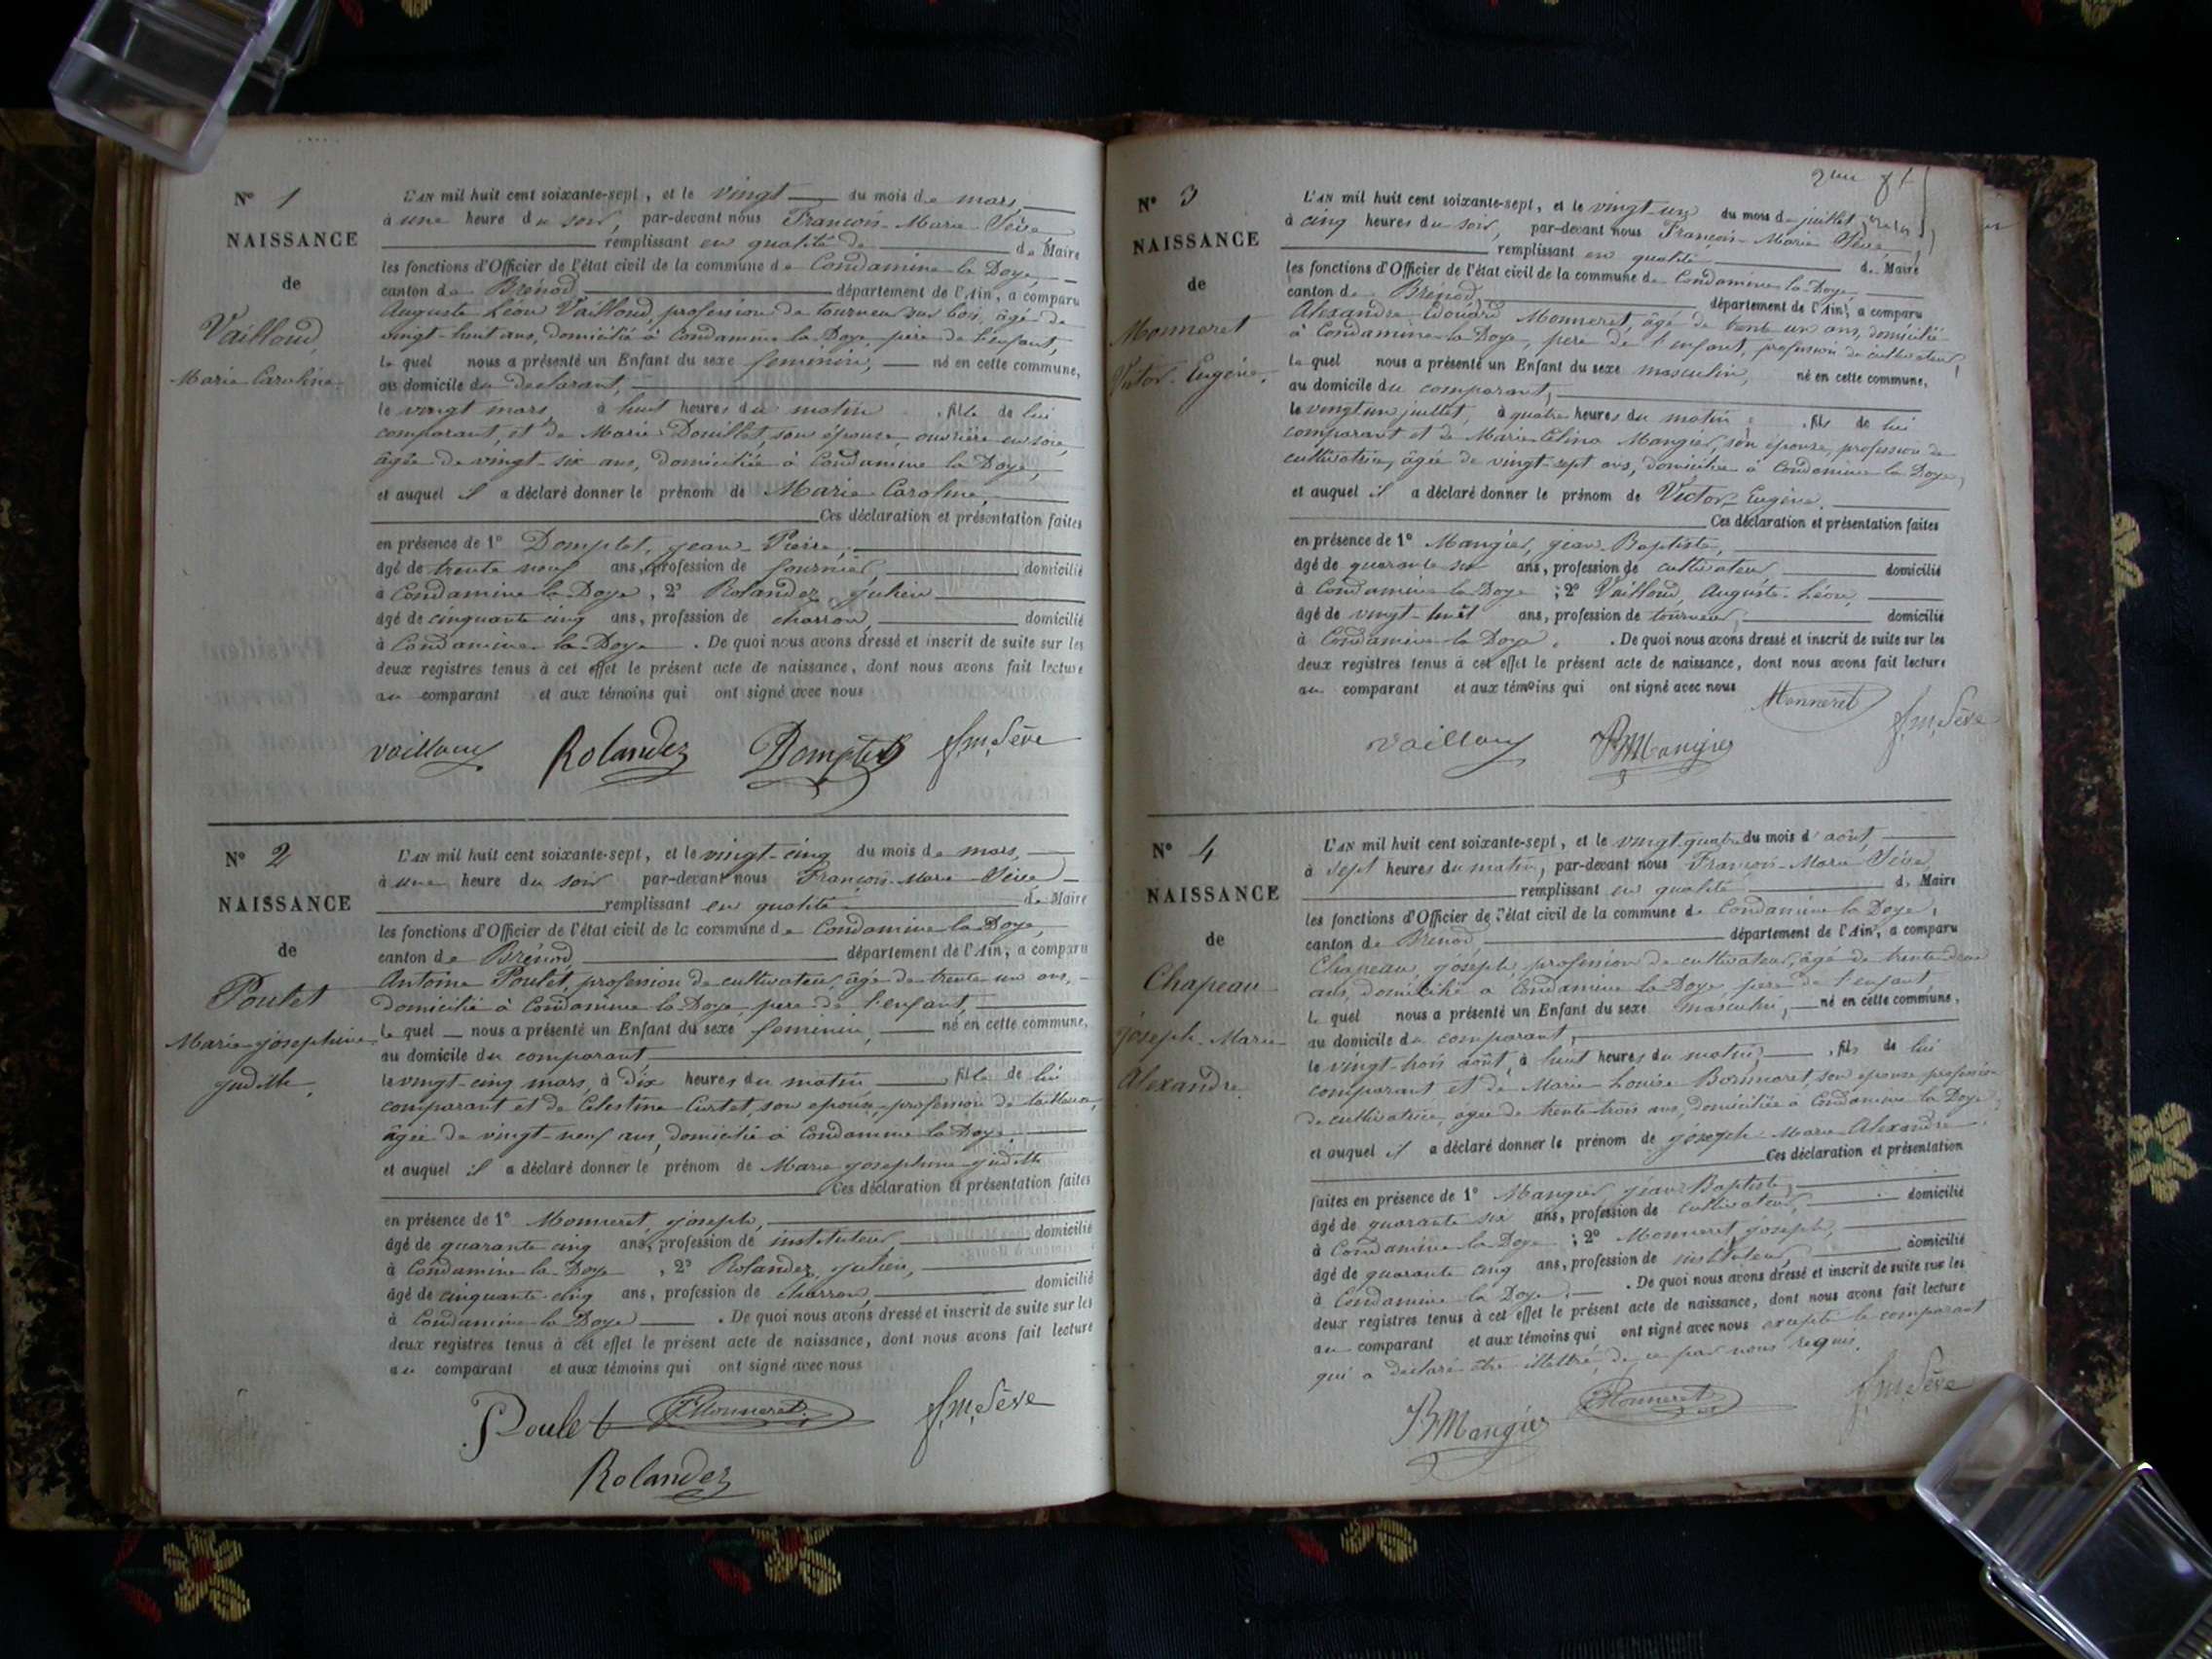 N° 1
NAISSANCE
de
Vailloud,
Marie Caroline.
L'AN mil huit cent soixante-sept, et le vingt du mois de mars,
à une heure du soir, par-devant nous François-Marie Sève,
remplissant en qualité de de Maire
les fonctions d'Officier de l'état civil de la commune de Condamine la Doye,
canton de Brénod, département de l'Ain, a comparu
Auguste Léon Vailloud, profession de tourneur sur bois, âgé de
vingt-huit ans, domicilié à Condamine la Doye, père de l'enfant,
lequel nous a présenté un Enfant du sexe féminin, né en cette commune,
au domicile du déclarant,
le vingt mars, à huit heures du matin, fille de lui
comparant, et de Marie Douillet, son épouse, ouvrière en soie,
âgée de vingt-six ans, domiciliée à Condamine la Doye,
et auquel il a déclaré donner le prénom de Marie Caroline,
Ces déclaration et présentation faites
en présence de 1° Domplet, jean-Pierre,
âgé de trente neuf ans, profession de fournier, domicilié
à Condamine la Doye, 2° Rolandez, Julien
âgé de cinquante cinq ans, profession de charron, domicilié
à Condamine la Doye. De quoi nous avons dressé et inscrit de suite sur les
deux registres tenus à cet effet le présent acte de naissance, dont nous avons fait lecture
au comparant et aux témoins qui ont signé avec nous
Vailloud Rolandez Domplet f.m. Sève
N° 2
NAISSANCE
de
Poulet
Marie-josephine
judith.
L'AN mil huit cent soixante-sept, et le vingt-cinq du mois de mars,
à une heure du soir par-devant nous François-Marie Sève,
remplissant en qualité de Maire
les fonctions d'Officier de l'état civil de la commune de Condamine la Doye,
canton de Brénod, département de l'Ain, a comparu
Antoine Poulet, profession de cultivateur, âgé de trente un ans,
domicilié à Condamine la Doye, père de l'enfant,
lequel nous a présenté un Enfant du sexe féminin, né en cette commune,
au domicile du comparant
le vingt-cinq mars, à dix heures du matin, fille de lui
comparant et de Célestine Curtet, son épouse, profession de tailleuse,
âgée de vingt-neuf ans, domicilié à Condamine la Doye,
et auquel il a déclaré donner le prénom de Marie josephine judith
Ces déclaration et présentation faites
en présence de 1° Monneret, joseph,
âgé de quarante cinq ans, profession de instituteur, domicilié
à Condamine la Doye, 2° Rolandez, Julien,
âgé de cinquante-cinq ans, profession de charron, domicilié
à Condamine la Doye. De quoi nous avons dressé et inscrit de suite sur les
deux registres tenus à cet effet le présent acte de naissance, dont nous avons fait lecture
au comparant et aux témoins qui ont signé avec nous
Poulet Monneret f.m. Sève
Rolandez
N° 3
NAISSANCE
de
Monneret
Victor-Eugène.
L'AN mil huit cent soixante-sept, et le vingt-un du mois de juillet,
à cinq heures du soir, par-devant nous François-Marie Sève,
remplissant en qualité de Maire
les fonctions d'Officier de l'état civil de la commune de Condamine la Doye,
canton de Brénod, département de l'Ain, a comparu
Alexandre Edouard Monneret, âgé de trente un ans, domicilié
à Condamine la Doye, père de l'enfant, profession de cultivateur,
lequel nous a présenté un Enfant du sexe masculin, né en cette commune,
au domicile du comparant,
le vingt un juillet, à quatre heures du matin, fils de lui
comparant et de Marie Célina Mangier, son épouse, profession de
cultivatrice, âgée de vingt-sept ans, domiciliée à Condamine la Doye,
et auquel il a déclaré donner le prénom de Victor-Eugène.
Ces déclaration et présentation faites
en présence de 1° Mangier, jean-Baptiste,
âgé de quarante six ans, profession de cultivateur, domicilié
à Condamine la Doye; 2° Vailloud, Auguste-Léon,
âgé de vingt-huit ans, profession de tourneur, domicilié
à Condamine la Doye. De quoi nous avons dressé et inscrit de suite sur les
deux registres tenus à cet effet le présent acte de naissance, dont nous avons fait lecture
au comparant et aux témoins qui ont signé avec nous Monneret
Vailloud JBMangier f.m. Sève
N° 4
NAISSANCE
de
Chapeau
joseph-Marie
Alexandre.
L'AN mil huit cent soixante-sept, et le vingt-quatre du mois d'août,
à sept heures du matin, par-devant nous François-Marie Sève,
remplissant en qualité de Maire
les fonctions d'Officier de l'état civil de la commune de Condamine la Doye,
canton de Brénod, département de l'Ain, a comparu
Chapeau, joseph, profession de cultivateur, âgé de trente deux
ans, domicilié à Condamine la Doye, père de l'enfant,
lequel nous a présenté un Enfant du sexe masculin, né en cette commune,
au domicile du comparant,
le vingt-trois août, à huit heures du matin, fils de lui
comparant et de Marie-Louise Bonneret, son épouse, profession
de cultivatrice, âgée de trente-trois ans, domiciliée à Condamine la Doye,
et auquel il a déclaré donner le prénom de joseph Marie Alexandre.
Ces déclaration et présentation
faites en présence de 1° Mangier, jean Baptiste,
âgé de quarante six ans, profession de cultivateur, domicilié
à Condamine la Doye; 2° Monneret, joseph,
âgé de quarante cinq ans, profession de instituteur, domicilié
à Condamine la Doye. De quoi nous avons dressé et inscrit de suite sur les
deux registres tenus à cet effet le présent acte de naissance, dont nous avons fait lecture
au comparant et aux témoins qui ont signé avec nous excepté le comparant
qui a déclaré être illettré, de ce par nous requis.
JBMangier Monneret f.m. Sève